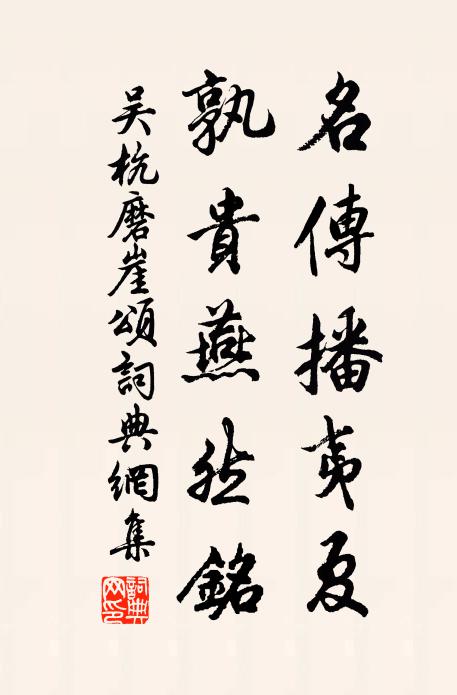 名傳播夷夏
孰貴燕然銘
吴杭磨崖頌詞典網集
詞典網印